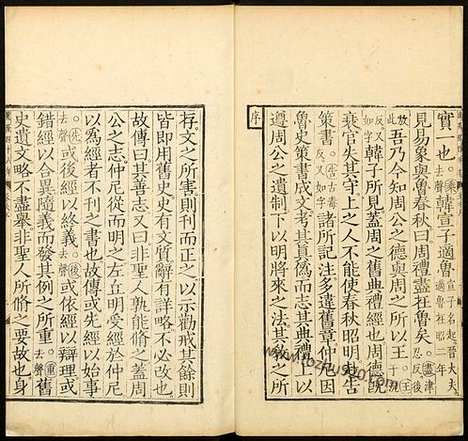 實一也乘去聲韓宣子適魯宣子名起晉大夫適魯在昭二年
見易象與魯春秋曰周禮盡在魯矣盡津忍反後
放此吾乃今知周公之德與周之所以王王
反又如字韓子所見蓋周之舊典禮經也周德旣
衰官失其守上之人不能使春秋昭明赴告
策書諸所記注多違舊章仲尼因
魯史策書成文考其眞偽而志其典禮上以
遵周公之遺制下以明將來之法其敎之所
序
存文之所害則刊而正之以示勸戒其餘則
皆即用舊史史有文質辭有詳略不必改也
故傳曰其善志又曰非聖人孰能脩之蓋周
公之志仲尼從而明之左丘明受經於仲尼
以為經者不刊之書也故傳或先經以始事
先去聲或後經以終義後去聲或依經以辯理或
錯經以合異隨義而發其例之所重重去聲舊
史遺文略不盡舉非聖人所脩之要故也身